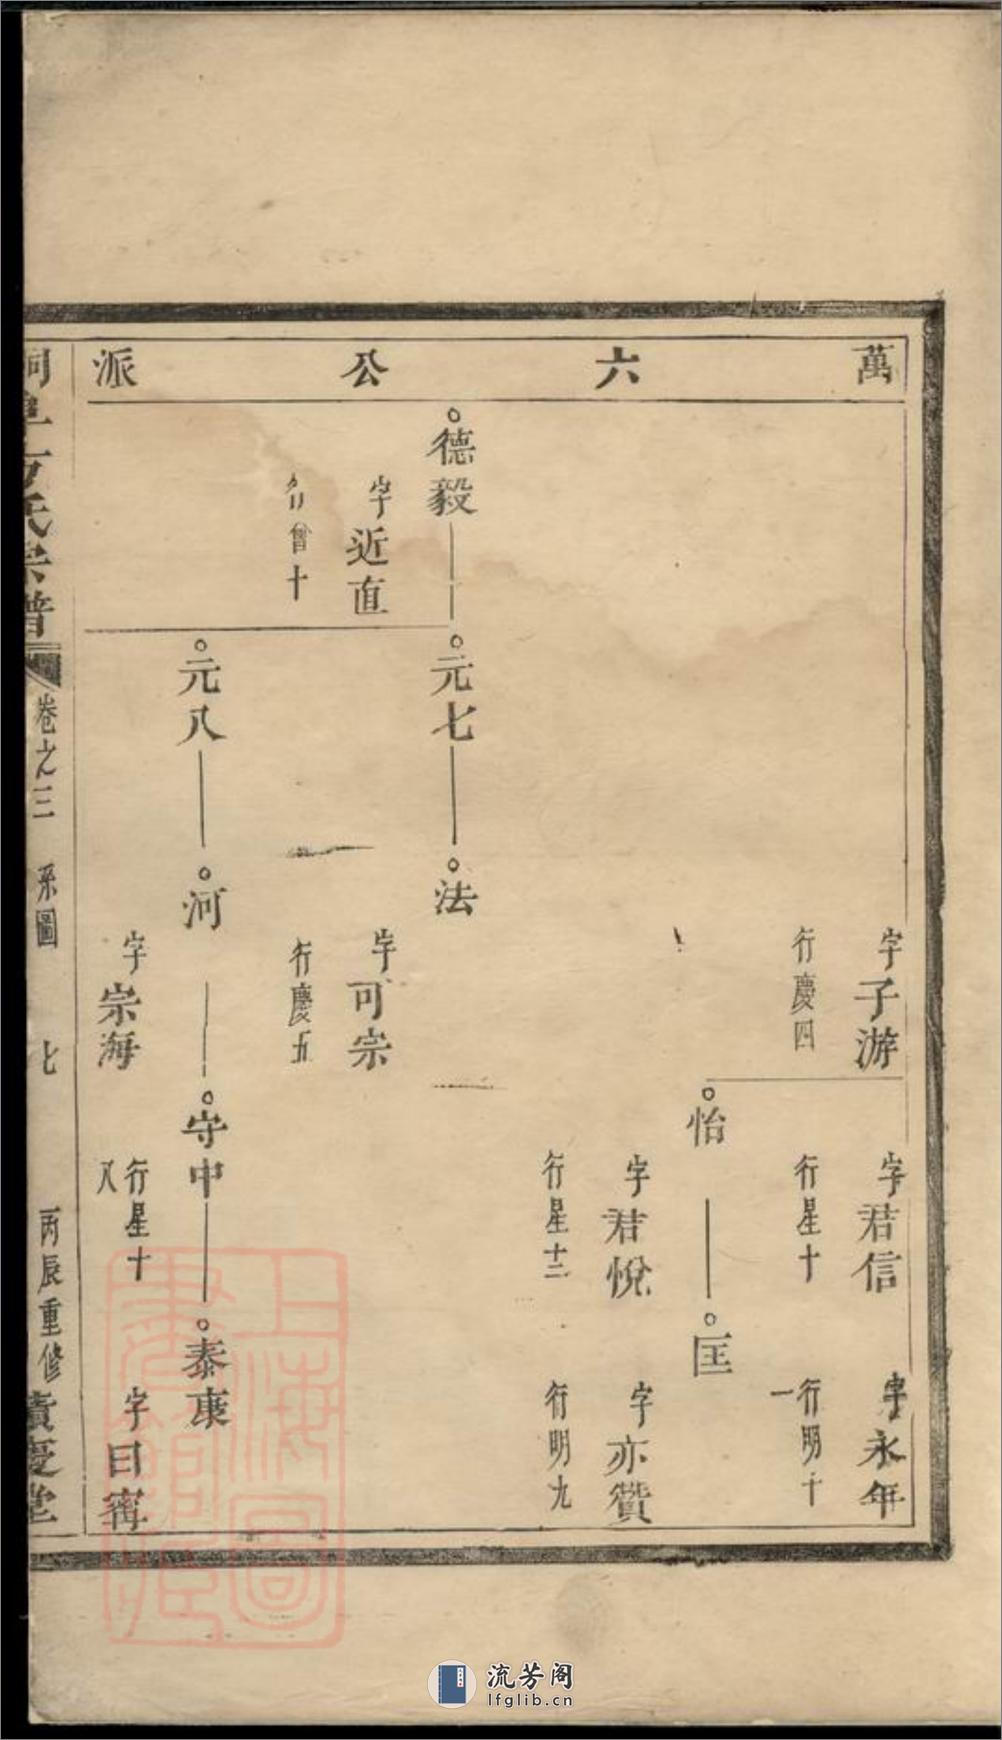 萬六公派
字子游
行慶四
字君信
行星十
字永年
行明十
一
怡
匡
字君悅
行星十三
字亦贊
行明九
德毅
元七
法
字近直
行曾十
字可宗
行慶五
元八
河
守中
泰康
字宗海
行星十
八
字曰寗
桐皋方氏宗譜
卷之三
系圖
七
丙辰重修
積慶堂
上海圖
書館藏
流芳阁
lfglib.cn